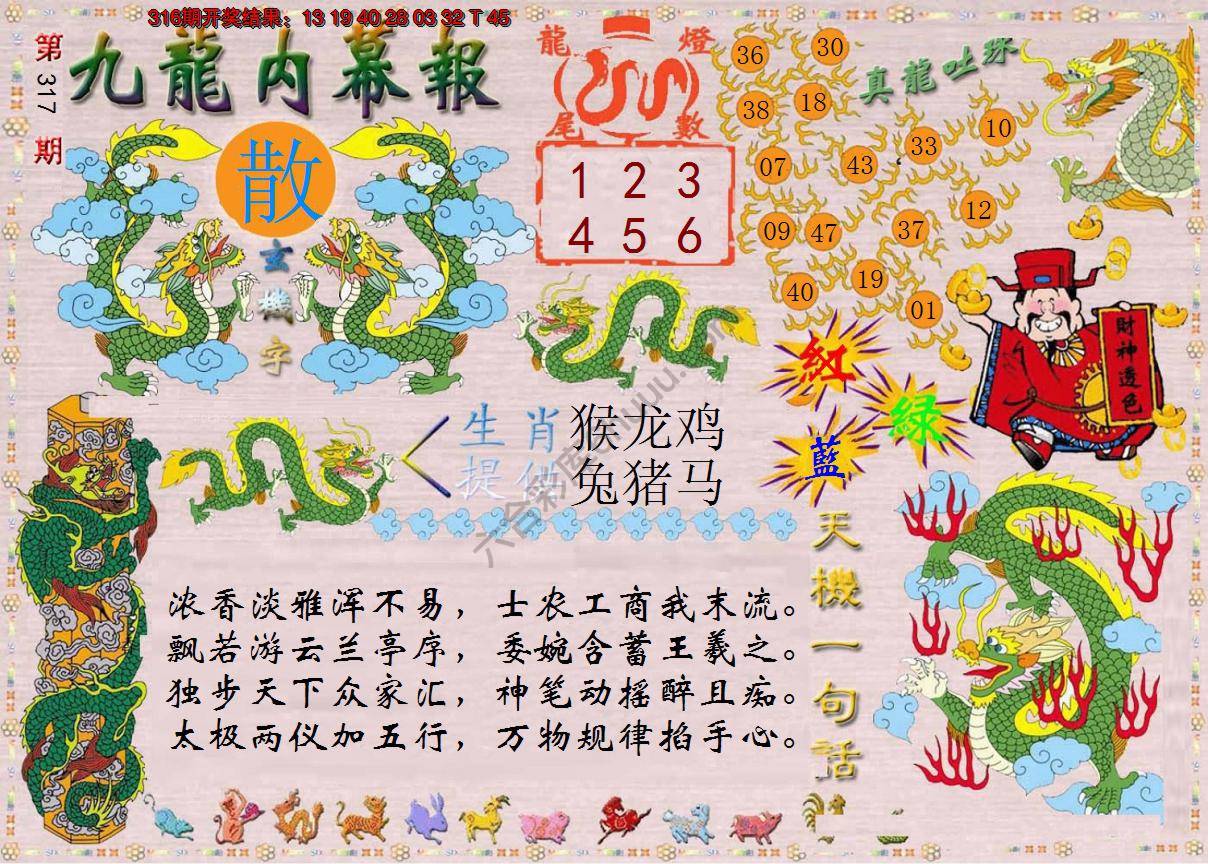 316期开奖结果：13 19 40 28 03 32 T 45
第317期
九龍内幕報
散
玄機字
龍燈尾數
1 2 3
4 5 6
真龍吐珠
36 30
38 18
07 43 33 10
09 47 37 12
40 19 01
財神透色
紅
綠
藍
生肖 猴龙鸡
提供 兔猪马
天機一句話
浓香淡雅浑不易，士农工商我末流。
飘若游云兰亭序，委婉含蓄王羲之。
独步天下众家汇，神笔动摇醉且痴。
太极两仪加五行，万物规律掐手心。